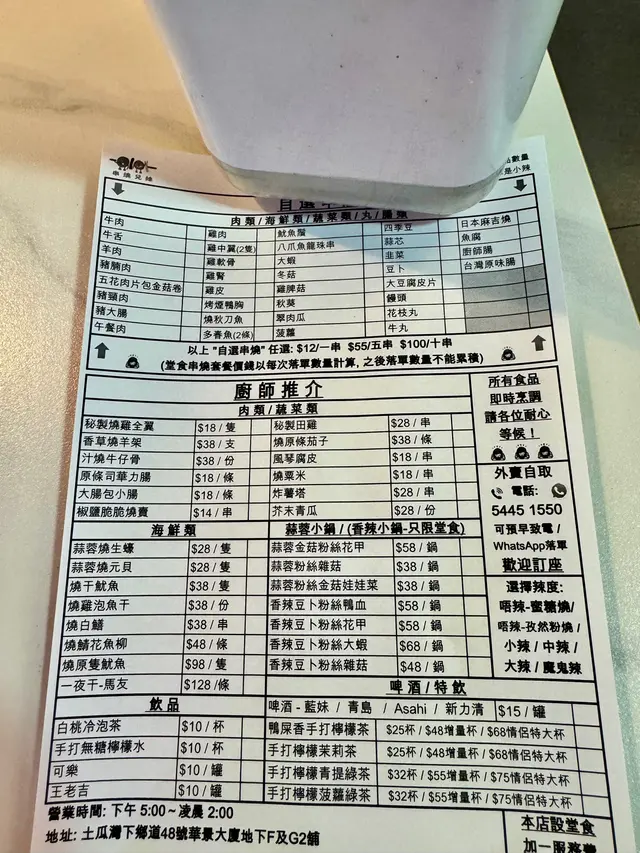 串燒兄妹
數量
是小辣
自選串
肉類/海鮮類/蔬菜類/丸/腸類
牛肉 雞肉 魷魚鬚 四季豆 日本麻吉燒
牛舌 雞中翼(2隻) 八爪魚龍珠串 蒜芯 魚腐
羊肉 雞軟骨 大蝦 韭菜 廚師腸
豬腩肉 雞腎 冬菇 豆卜 台灣原味腸
五花肉片包金菇卷 雞皮 雞脾菇 大豆腐皮片
豬頸肉 烤煙鴨胸 秋葵 饅頭
豬大腸 燒秋刀魚 翠肉瓜 花枝丸
午餐肉 多春魚(2條) 菠蘿 牛丸
以上 "自選串燒" 任選: $12/一串 $55/五串 $100/十串
(堂食串燒套餐價錢以每次落單數量計算, 之後落單數量不能累積)
廚師推介
肉類/蔬菜類
秘製燒雞全翼 $18 / 隻 秘製田雞 $28 / 串
香草燒羊架 $38 / 支 燒原條茄子 $38 / 條
汁燒牛仔骨 $38 / 份 風琴腐皮 $18 / 串
原條司華力腸 $18 / 條 燒粟米 $18 / 串
大腸包小腸 $18 / 條 炸薯塔 $28 / 串
椒鹽脆脆燒賣 $14 / 串 芥末青瓜 $28 / 份
海鮮類
蒜蓉燒生蠔 $28 / 隻
蒜蓉燒元貝 $28 / 隻
燒干魷魚 $38 / 隻
燒雞泡魚干 $38 / 份
燒白鱔 $38 / 串
燒鯖花魚柳 $48 / 條
燒原隻魷魚 $98 / 隻
一夜干-馬友 $128 /條
蒜蓉小鍋 / (香辣小鍋-只限堂食)
蒜蓉金菇粉絲花甲 $58 / 鍋
蒜蓉粉絲雜菇 $38 / 鍋
蒜蓉粉絲金菇娃娃菜 $38 / 鍋
香辣豆卜粉絲鴨血 $58 / 鍋
香辣豆卜粉絲花甲 $58 / 鍋
香辣豆卜粉絲大蝦 $68 / 鍋
香辣豆卜粉絲雜菇 $48 / 鍋
飲品
白桃冷泡茶 $10 / 杯
手打無糖檸檬水 $10 / 杯
可樂 $10 / 罐
王老吉 $10 / 罐
啤酒/特飲
啤酒 - 藍妹 / 青島 / Asahi / 新力清 $15 / 罐
鴨屎香手打檸檬茶 $25杯 / $48增量杯 / $68情侶特大杯
手打檸檬茉莉茶 $25杯 / $48增量杯 / $68情侶特大杯
手打檸檬青提綠茶 $32杯 / $55增量杯 / $75情侶特大杯
手打檸檬菠蘿綠茶 $32杯 / $55增量杯 / $75情侶特大杯
所有食品
即時烹調
請各位耐心
等候！
外賣自取
電話:
5445 1550
可預早致電 /
WhatsApp落單
歡迎訂座
選擇辣度:
唔辣-蜜糖燒/
唔辣-孜然粉燒 /
小辣 / 中辣 /
大辣 / 魔鬼辣
營業時間: 下午 5:00 ~ 凌晨 2:00
地址: 土瓜灣下鄉道48號華景大廈地下F及G2舖
本店設堂食
加一服務費